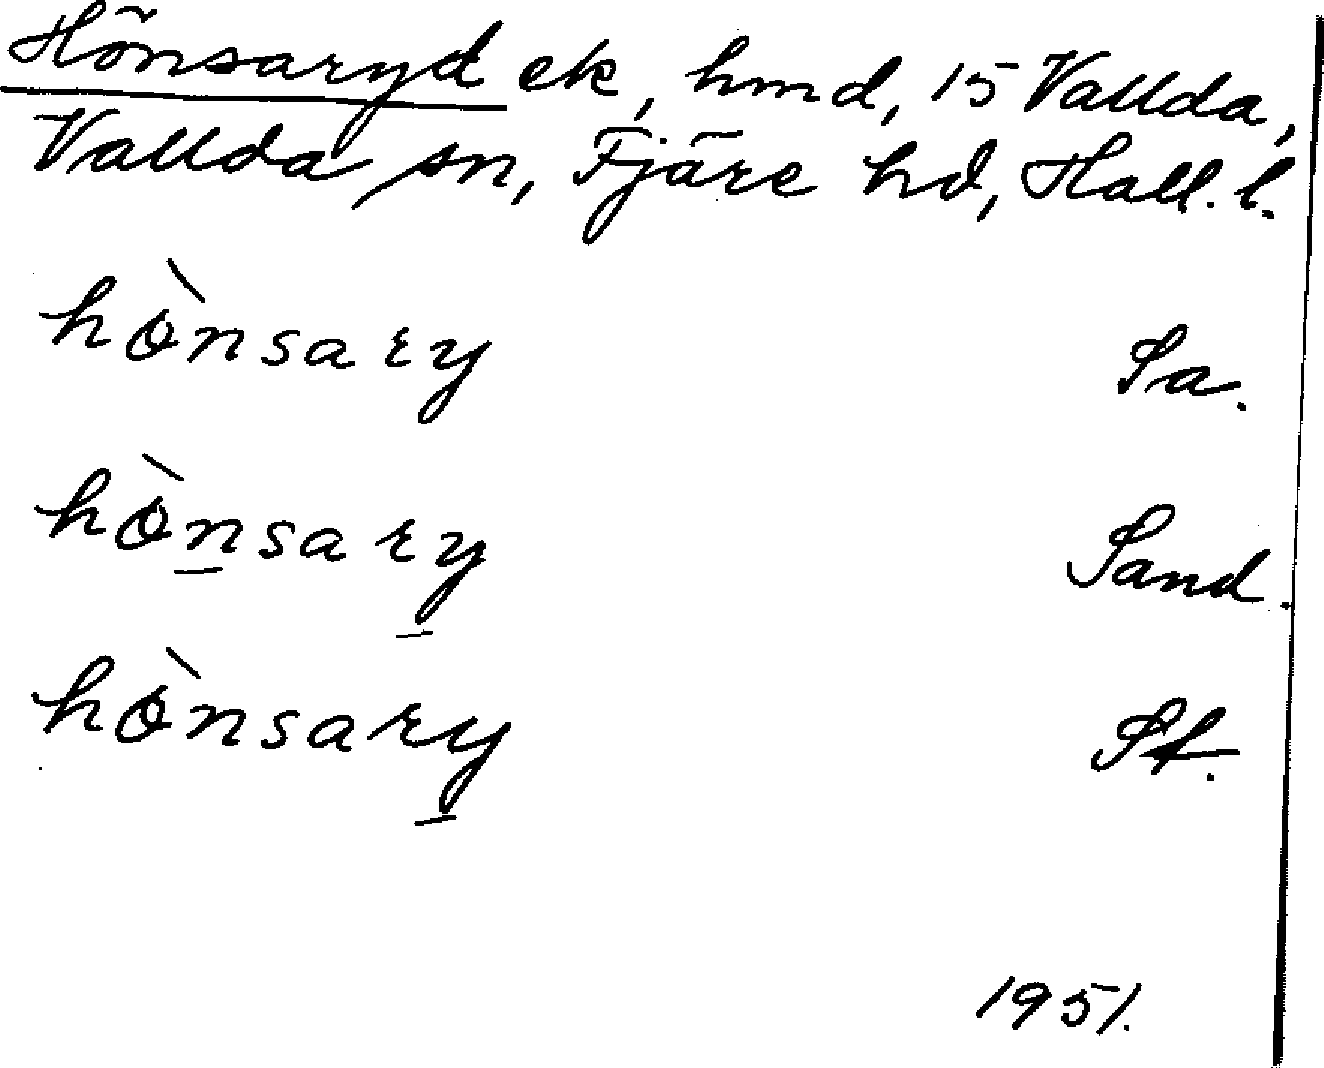 Hönsaryd ek, hmd, 15 Vallda,
Vallda sn, Fjäre hd, Hall. l.
hὸnsary Sa.
hὸn̲sary̲ Sand.
hὸnsary̲ St.
1951.